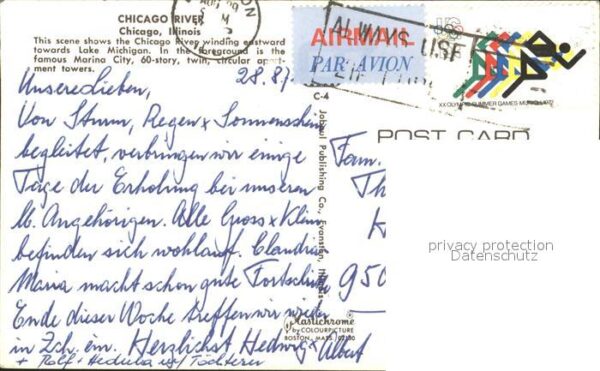 CHICAGO RIVER
Chicago, Illinois
This scene shows the Chicago River winding eastward
towards Lake Michigan. In the foreground is the
famous Marina City, 60-story, twin, circular apart-
ment towers.
28.8.7
Unsere Lieben,
Von Sturm, Regen x Sonnenschein
begleitet, verbringen wir einige
Tage der Erholung bei unseren
lb. Angehörigen. Alle Gross x Klein
befinden sich wohlauf. Claudia
Maria macht schon gute Fortschritte
Ende dieser Woche treffen wir wieder
in Zch. ein. Herzlichst Hedwig x Albert
+ Rolf + Töchter
AIRMAIL
PAR AVION
ALWAYS USE
ZIP
US
8c
XX OLYMPIC SUMMER GAMES MUNICH 1972
C-4
Publishing Co., Evanston,
POST CARD
Fam.
Th
K
950
privacy protection
Datenschutz
Plastichrome
by COLOURPICTURE
BOSTON, MASS. 02130